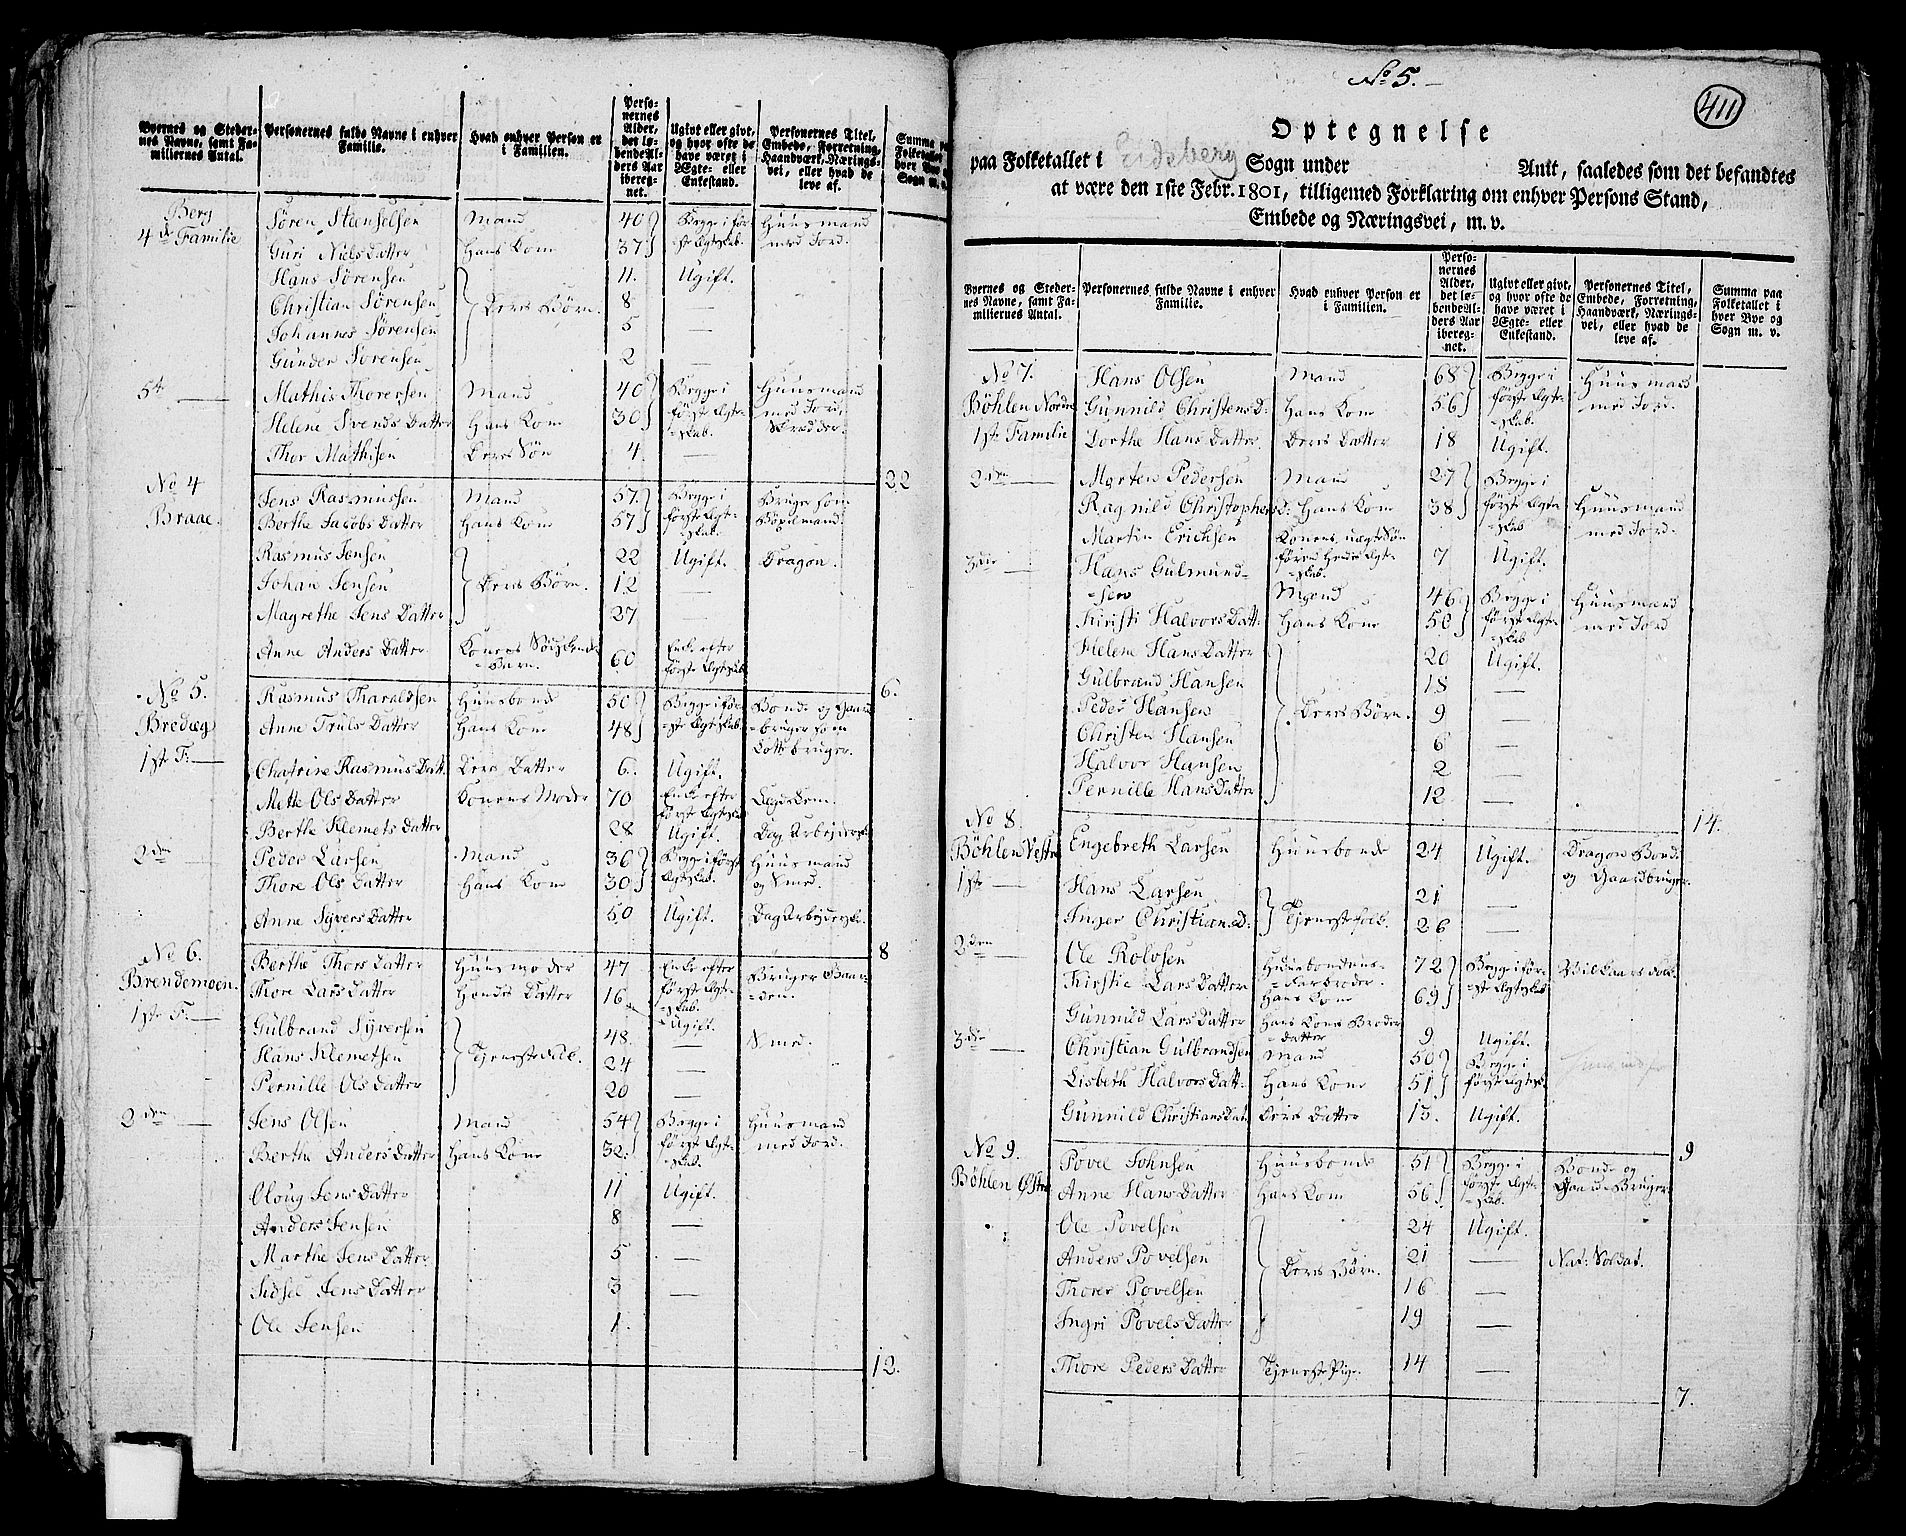 Byernes og Steder-
nes Navne, samt Fa-
miliernes Antal.
Personernes fulde Navne i enhver
Familie.
Hvad enhver Person er
i Familien.
Perso-
nernes
Alder,
det lø-
bende Al-
ders Aar
ibereg-
net.
Ugivt eller givt,
og hvor ofte de
have været i
Ægte- eller
Enkestand.
Personernes Titel,
Embede, Forretning,
Haandværk, Nærings-
vei, eller hvad de
leve af.
Summa paa
Folketallet
hver Bye
Sogn m. v.
Berg
4de Familie
Søren Steenselsen Mand 40 Begge i før- Huusmand
Guri Niels Datter Hans Kone 37 ste Egteskab. med Jord.
Hans Sørensen 11. Ugift.
Christian Sørensen Deres Børn. 8 —
Johannes Sørensen 5 —
Gunder Sørensen 2 —
5te — Mathis Thoresen Mand 40 Begge i Huusmand
Helene Svends Datter Hans Kone 30 første Egte- med Jord,
skab. Skrædder.
Thor Mathisen Deres Søn 4. —
22
No 4 Jens Rasmussen Mand 57. Begge i Bruger som
Braae. Berthe Jacobs Datter Hans Kone 57 første Egte- Bøxelmand.
skab.
Rasmus Jensen 22 Ugift. Dragon.
Johan Jensen Deres Børn. 12 —
Magrethe Jens Datter 27 —
Anne Anders Datter Konens Søskende- 60 Enke efter
Barn. første Egteskab.
6.
No 5. Rasmus Tharaldsen Huusbonde 50 Begge i før- Bonde og Gaard
Bredeg Anne Truls Datter Hans Kone 48 ste Egteskab. bruger som
Lottsbruger.
1ste F: — Chatrine Rasmus Datt. Deres Datter 6. Ugift.
Mette Ols Datter Konens Moder 70 Enke efter Legdslem.
første Egteskab
Berthe Klemets Datter 28 Ugift. Dag Arbejderske
2den — Peder Larsen Mand 36 Begge i første Huusmand
Thore Ols Datter Hans Kone 30 Egteskab. og Smed.
Anne Syvers Datter 50 Ugift. Dag Arbejderske.
8
No 6. Berthe Thors Datter Huusmoder 47 Enke efter Bruger Gaar-
Brendemoen. Thore Lars Datter Hendes Datter 16 første Egte- den.
skab.
1ste F: — Gulbrand Syversen 48. Ugift. Smed.
Hans Klemetsen Tjenestefolk. 24 —
Pernille Ols Datter 20 —
2den — Jens Olsen Mand 54 Begge i Huusmand
Berthe Anders Datter Hans Kone 32. første Egte- med Jord.
skab.
Oloug Jens Datter 11 Ugift.
Anders Jensen 8 —
Marthe Jens Datter 5 —
Sidsel Jens Datter 3 —
Ole Jensen 1.
12.
No 5. —
411
Optegnelse
paa Folketallet i Eidsberg Sogn under Amt, saaledes som det befandtes
at være den 1ste Febr. 1801, tilligemed Forklaring om enhver Persons Stand,
Embede og Næringsvei, m. v.
Byernes og Steder-
nes Navne, samt Fa-
miliernes Antal.
Personernes fulde Navne i enhver
Familie.
Hvad enhver Person er
i Familien.
Perso-
nernes
Alder,
det lø-
bende Al-
ders Aar
ibereg-
net.
Ugivt eller givt,
og hvor ofte de
have været i
Ægte- eller
Enkestand.
Personernes Titel,
Embede, Forretning,
Haandværk, Nærings-
vei, eller hvad de
leve af.
Summa paa
Folketallet i
hver Bye og
Sogn m. v.
No 7. Hans Olsen Mand 68 Begge i Huusmand
Böhlen Nordre Gunnild Christens D: Hans Kone 56 første Egte- med Jord.
skab.
1ste Familie Dorthe Hans Datter. Deres Datter 18 Ugift.
2den — Morten Pedersen Mand 27 Begge i
Ragnild Christophers D: Hans Kone 38 første Egte- Huusmand
skab med Jord.
Martin Erichsen Konens uægte Søn 7 Ugift.
3die — Hans Gulmund- førend Hendes Egte-
skab.
sen Mand 46 Begge i Huusmand
Kiristi Halvors Datt: Hans Kone 50 første Egte- med Jord
skab
Helene Hans Datter 20 Ugift.
Gulbrand Hansen 18 —
Peder Hansen Deres Børn. 9 —
Christen Hansen 6 —
Halvor Hansen 2 —
Pernille Hans Datter 12 —
14.
No 8.
Böhlen Vestre Engebreth Larsen Huusbonde 24 Ugift. Dragon Bonde
og Gaardbruger.
1ste — Hans Larsen 21 —
Inger Christians D: Tjenestefolk. 26 —
2den — Ole Rolvsen Huusbondens 72 Begge i før- Vilkaarsfolk.
Farbroder.
Kirstie Lars Datter Hans Kone 69 ste Egteskab
Gunnild Lars Datter Hans Kones Broder 9. Ugift.
datter
3die — Christian Gulbrandsen Mand 50 Begge i
Lisbeth Halvors Datt: Hans Kone 51 første Egtesk.
Gunnild Christians Dat. Deres Datter 13. Ugift.
9
No 9. Povel Johnsen Huusbonde 51 Begge i Bonde og
Böhlen Østre Anne Hans Datter Hans Kone 56 første Egte- Gaard Bruger
skab.
Ole Povelsen 24 Ugift.
Anders Povelsen Deres Børn. 21 — Nat: Soldat.
Thorer Povelsen 16 —
Ingri Povels Datter 19 —
Thore Peders Datter Tjeneste Pige 14 —
7.